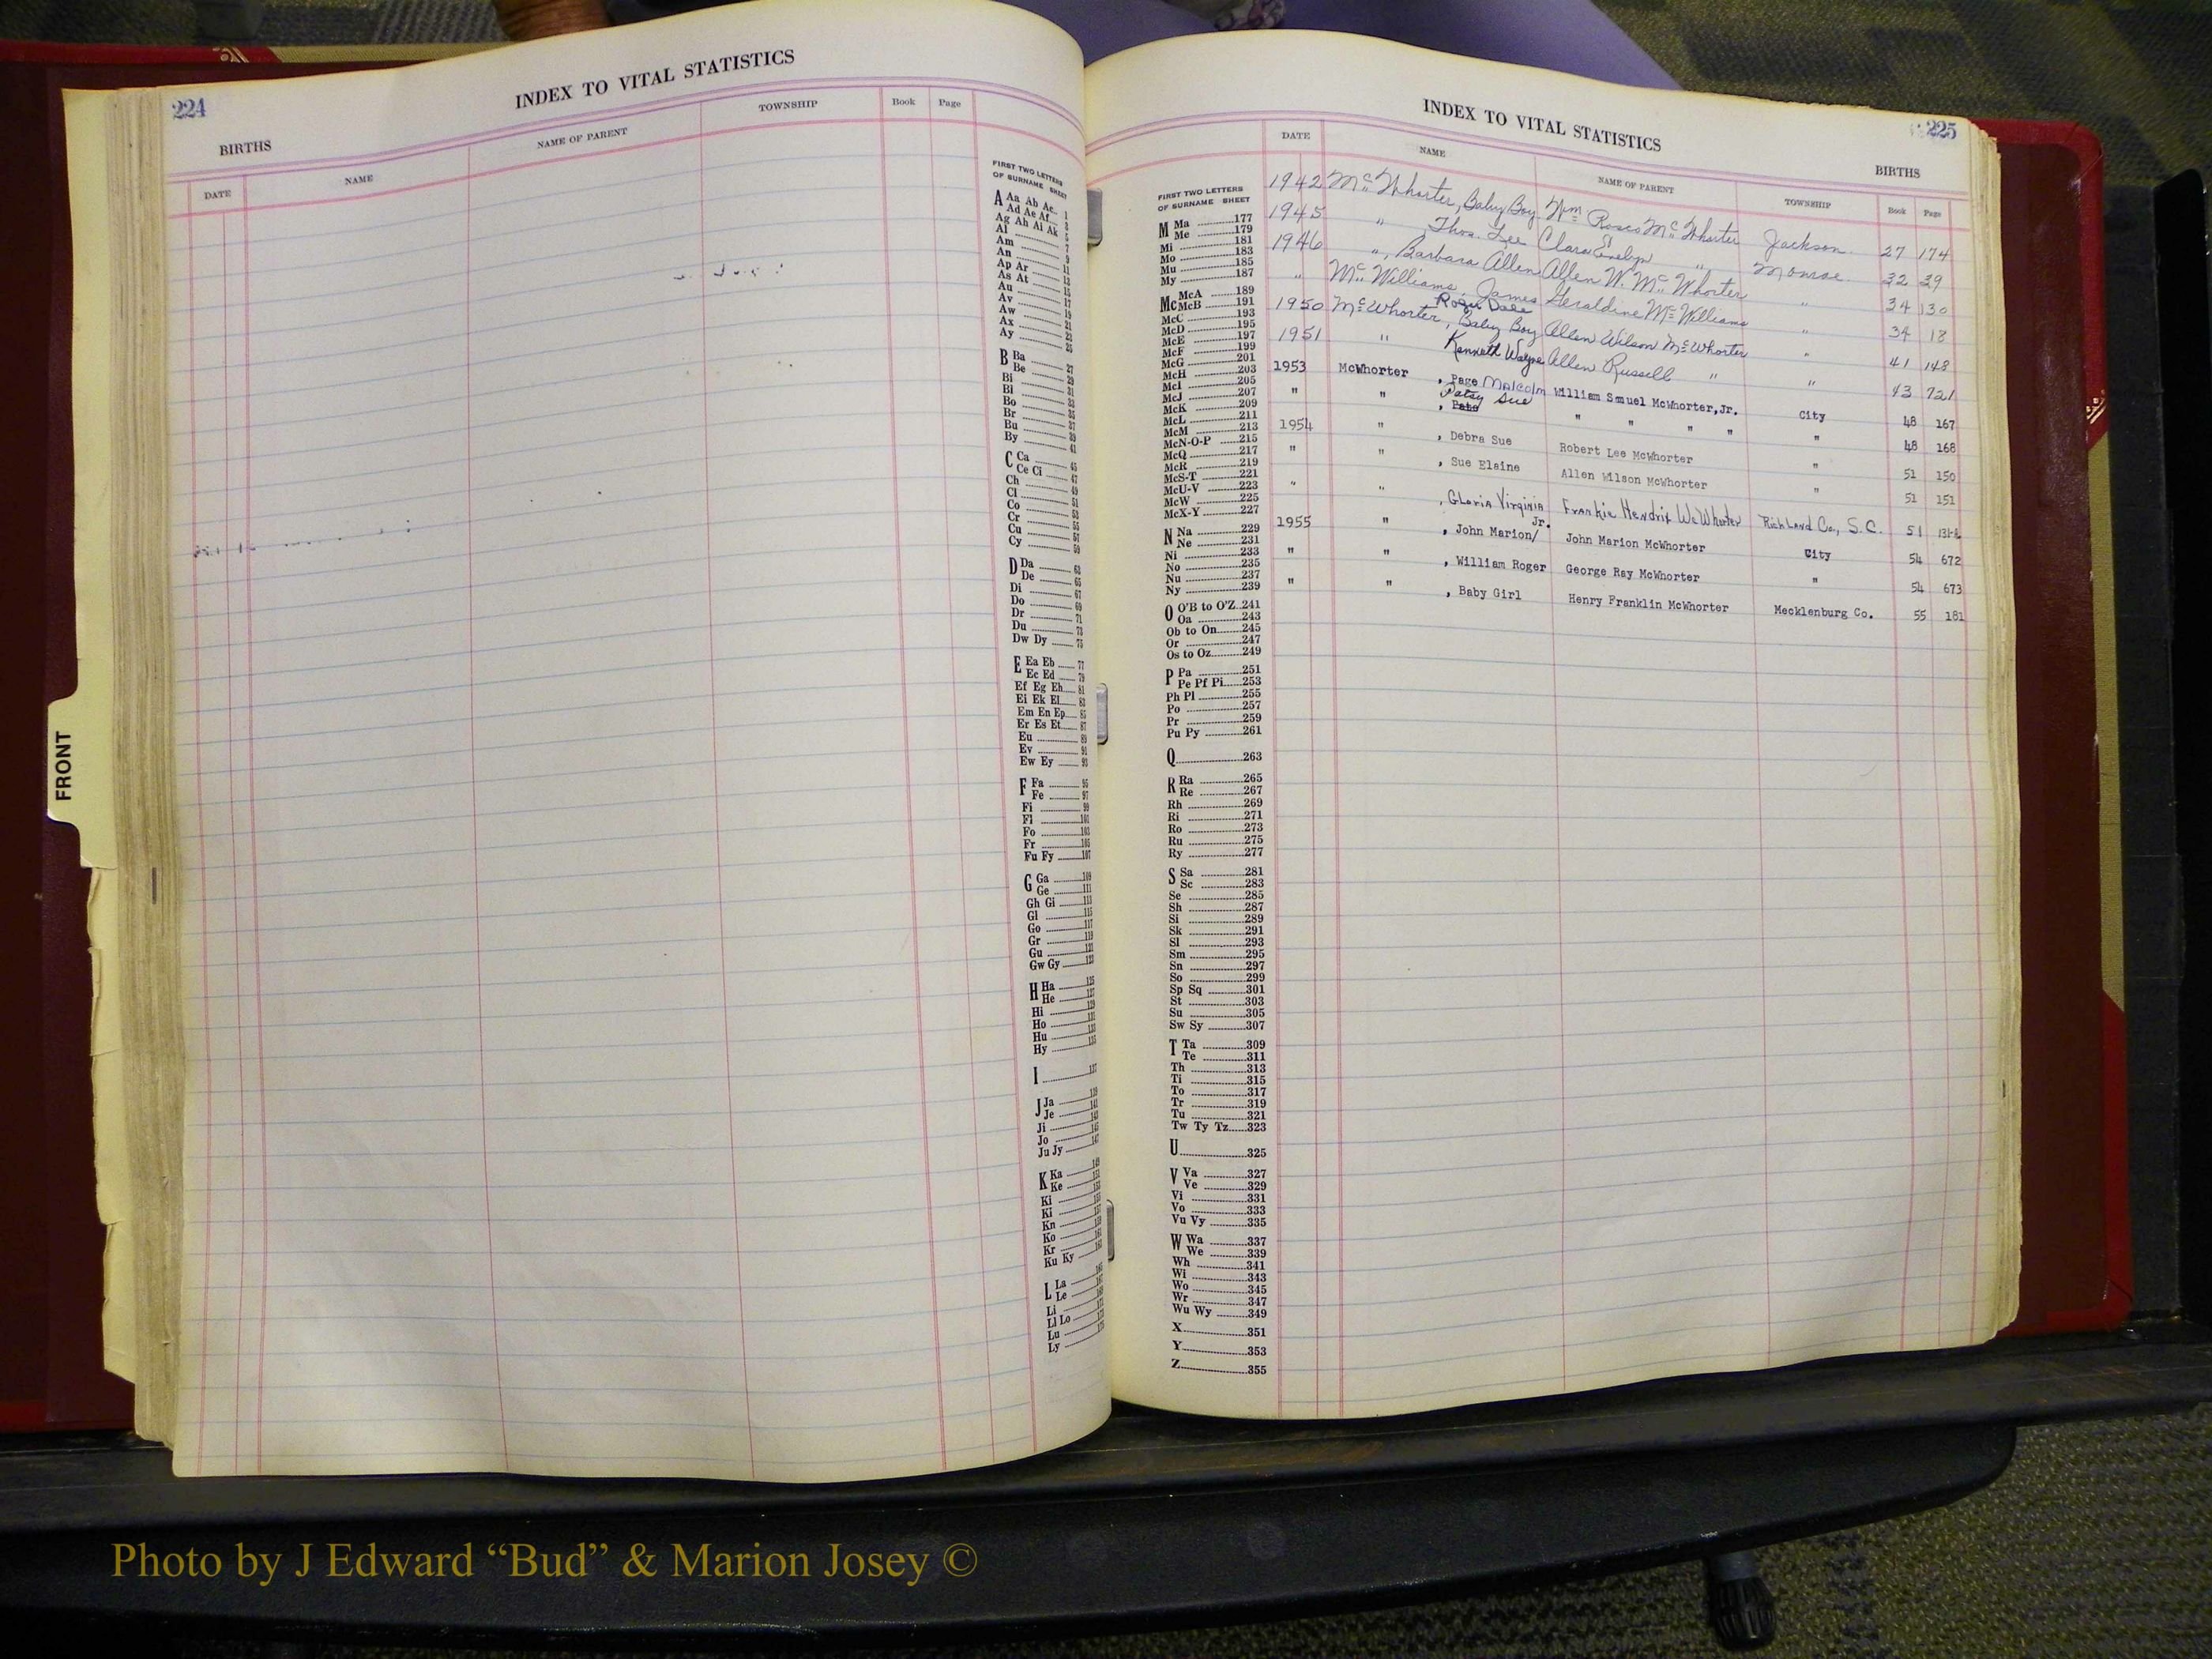 224
INDEX TO VITAL STATISTICS
BIRTHS
DATE NAME NAME OF PARENT TOWNSHIP Book Page
FIRST TWO LETTERS
OF SURNAME SHEET
A Aa Ab Ac 1
Ad Ae Af 3
Ag Ah Ai Ak 5
Al 7
Am 9
An 11
Ap Ar 13
As At 15
Au 17
Av 19
Aw 21
Ax 23
Ay 25
B Ba 27
Be 29
Bi 31
Bl 33
Bo 35
Br 37
Bu 39
By 41
C Ca 45
Ce Ci 47
Ch 49
Cl 51
Co 53
Cr 55
Cu 57
Cy 59
D Da 63
De 65
Di 67
Do 69
Dr 71
Du 73
Dw Dy 75
E Ea Eb 77
Ec Ed 79
Ef Eg Eh 81
Ei Ek El 83
Em En Ep 85
Er Es Et 87
Eu 89
Ev 91
Ew Ey 93
F Fa 95
Fe 97
Fi 99
Fl 101
Fo 103
Fr 105
Fu Fy 107
G Ga 109
Ge 111
Gh Gi 113
Gl 115
Go 117
Gr 119
Gu 121
Gw Gy 123
H Ha 125
He 127
Hi 129
Ho 131
Hu 133
Hy 135
I 137
J Ja 139
Je 141
Ji 143
Jo 145
Ju Jy 147
K Ka 149
Ke
Ki
Ki
Kn
Ko
Kr
Ku Ky
L La
Le
Li
Ll Lo
Lu
Ly
FRONT
225
INDEX TO VITAL STATISTICS
BIRTHS
DATE NAME NAME OF PARENT TOWNSHIP Book Page
1942 McWhorter, Baby Boy Wm Rosco McWhorter Jackson 27 174
1945 " Thos. Lee Clara Evelyn " Monroe 32 39
1946 ", Barbara Allen Allen W. McWhorter " 34 130
" McWilliams, James Geraldine McWilliams " 34 18
Roger Dale
1950 McWhorter, Baby Boy Allen Wilson McWhorter " 41 148
1951 " Kenneth Wayne Allen Russell " " 43 721
1953 McWhorter , Page Malcolm William Smuel McWhorter,Jr. City 48 167
Patsy Sue
" " , Pate " " " " " 48 168
1954 " , Debra Sue Robert Lee McWhorter " 51 150
" " , Sue Elaine Allen Wilson McWhorter " 51 151
" " , Gloria Virginia Frankie Hendrix McWhorter Richland Co., S.C. 51
Jr.
1955 " , John Marion/ John Marion McWhorter City 54 672
" " , William Roger George Ray McWhorter " 54 673
" " , Baby Girl Henry Franklin McWhorter Mecklenburg Co. 55 181
FIRST TWO LETTERS
OF SURNAME SHEET
M Ma 177
Me 179
Mi 181
Mo 183
Mu 185
My 187
Mc McA 189
McB 191
McC 193
McD 195
McE 197
McF 199
McG 201
McH 203
McI 205
McJ 207
McK 209
McL 211
McM 213
McN-O-P 215
McQ 217
McR 219
McS-T 221
McU-V 223
McW 225
McX-Y 227
N Na 229
Ne 231
Ni 233
No 235
Nu 237
Ny 239
O O'B to O'Z 241
Oa 243
Ob to On 245
Or 247
Os to Oz 249
P Pa 251
Pe Pf Pi 253
Ph Pl 255
Po 257
Pr 259
Pu Py 261
Q 263
R Ra 265
Re 267
Rh 269
Ri 271
Ro 273
Ru 275
Ry 277
S Sa 281
Sc 283
Se 285
Sh 287
Si 289
Sk 291
Sl 293
Sm 295
Sn 297
So 299
Sp Sq 301
St 303
Su 305
Sw Sy 307
T Ta 309
Te 311
Th 313
Ti 315
To 317
Tr 319
Tu 321
Tw Ty Tz 323
U 325
V Va 327
Ve 329
Vi 331
Vo 333
Vu Vy 335
W Wa 337
We 339
Wh 341
Wi 343
Wo 345
Wr 347
Wu Wy 349
X 351
Y 353
Z 355
Photo by J Edward “Bud” & Marion Josey ©